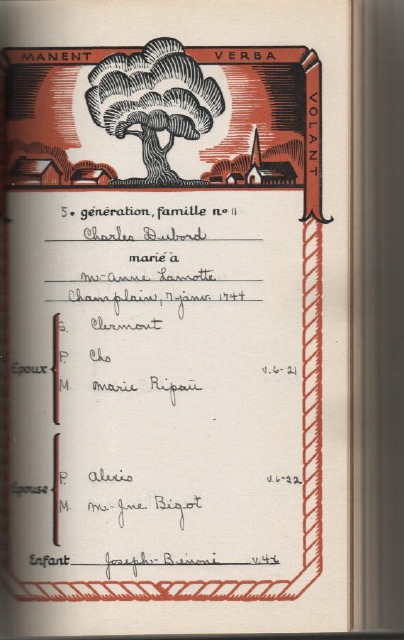 MANENT VERBA VOLANT
5e génération, famille no 11
Charles Dubord
marié à
M-Anne Lamotte
Champlain, 7 janv. 1744
S. Clermont
Époux P. Chs v.6-21
M. Marie Ripau
Épouse P. Alexis v.6-22
M. M.-Jne Bigot
Enfant Joseph-Bénoni